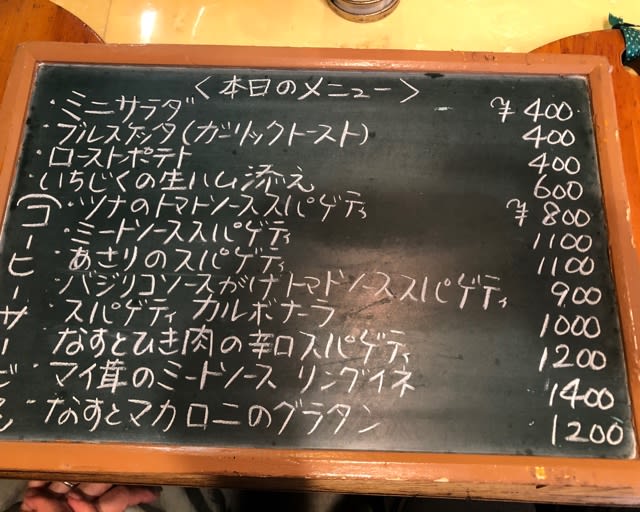 〈本日のメニュー〉
・ミニサラダ ¥400
・ブルスケッタ(ガーリックトースト) 400
・ローストポテト 400
・いちじくの生ハム添え 600
・ツナのトマトソーススパゲティ ¥800
・ミートソーススパゲティ 1100
・あさりのスパゲティ 1100
・バジリコソースがけトマトソーススパゲティ 900
・スパゲティ カルボナーラ 1000
・なすとひき肉の辛口スパゲティ 1200
・マイ茸のミートソース リングイネ 1400
・なすとマカロニのグラタン 1200
コーヒーサービ